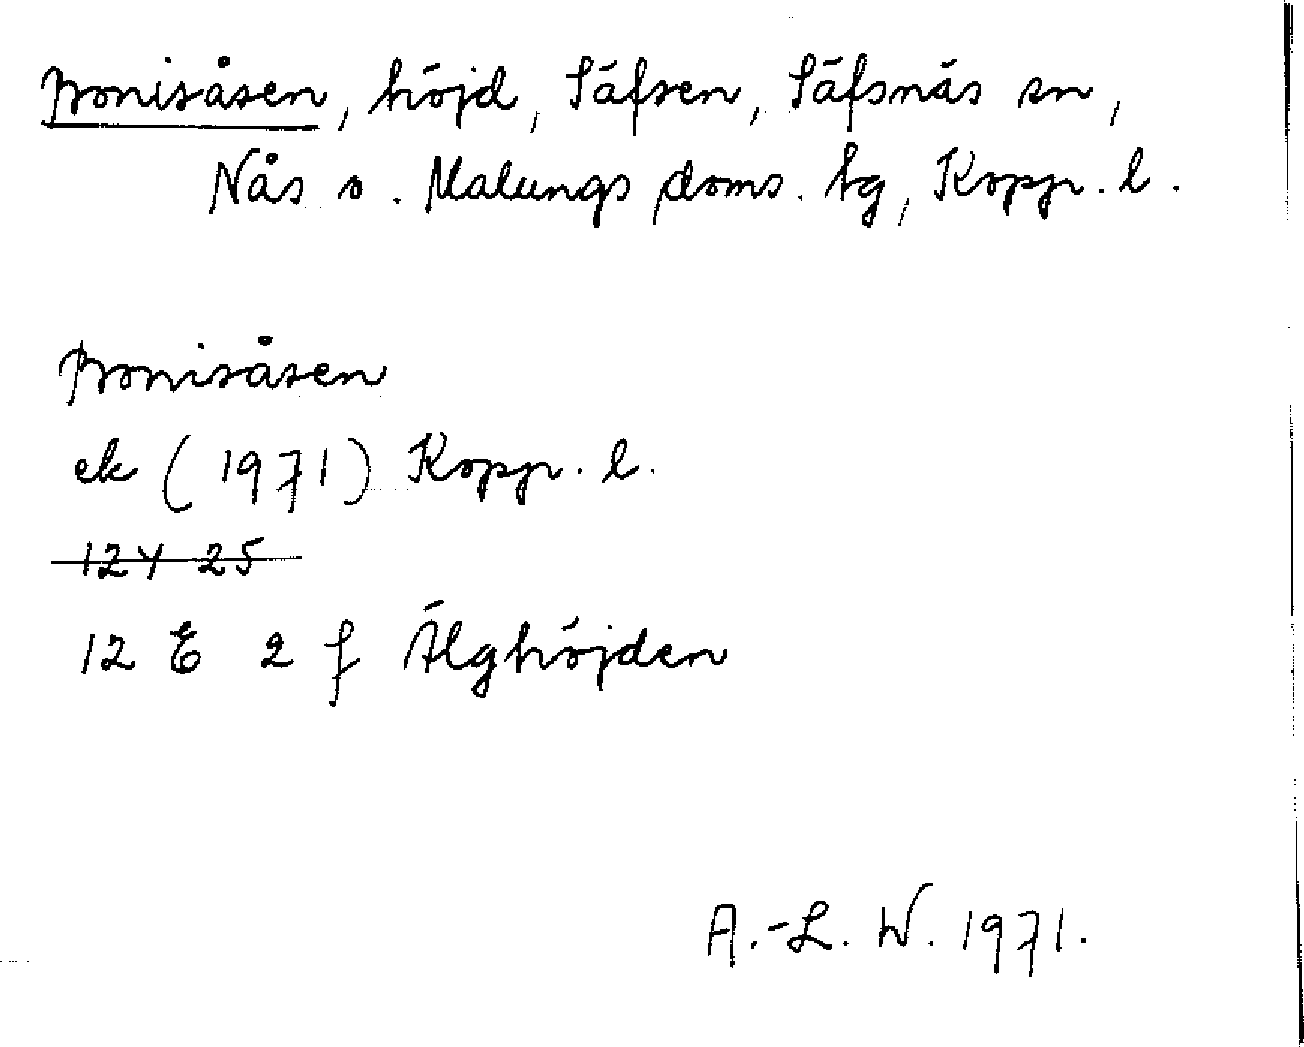 Bonisåsen, höjd, Säfsen, Säfsnäs sn,
Nås o. Malungs doms. tg, Kopp. l.
Bonisåsen
ek (1971) Kopp. l.
12Y 25
12 E 2 f Älghöjden
A.-L. W. 1971.